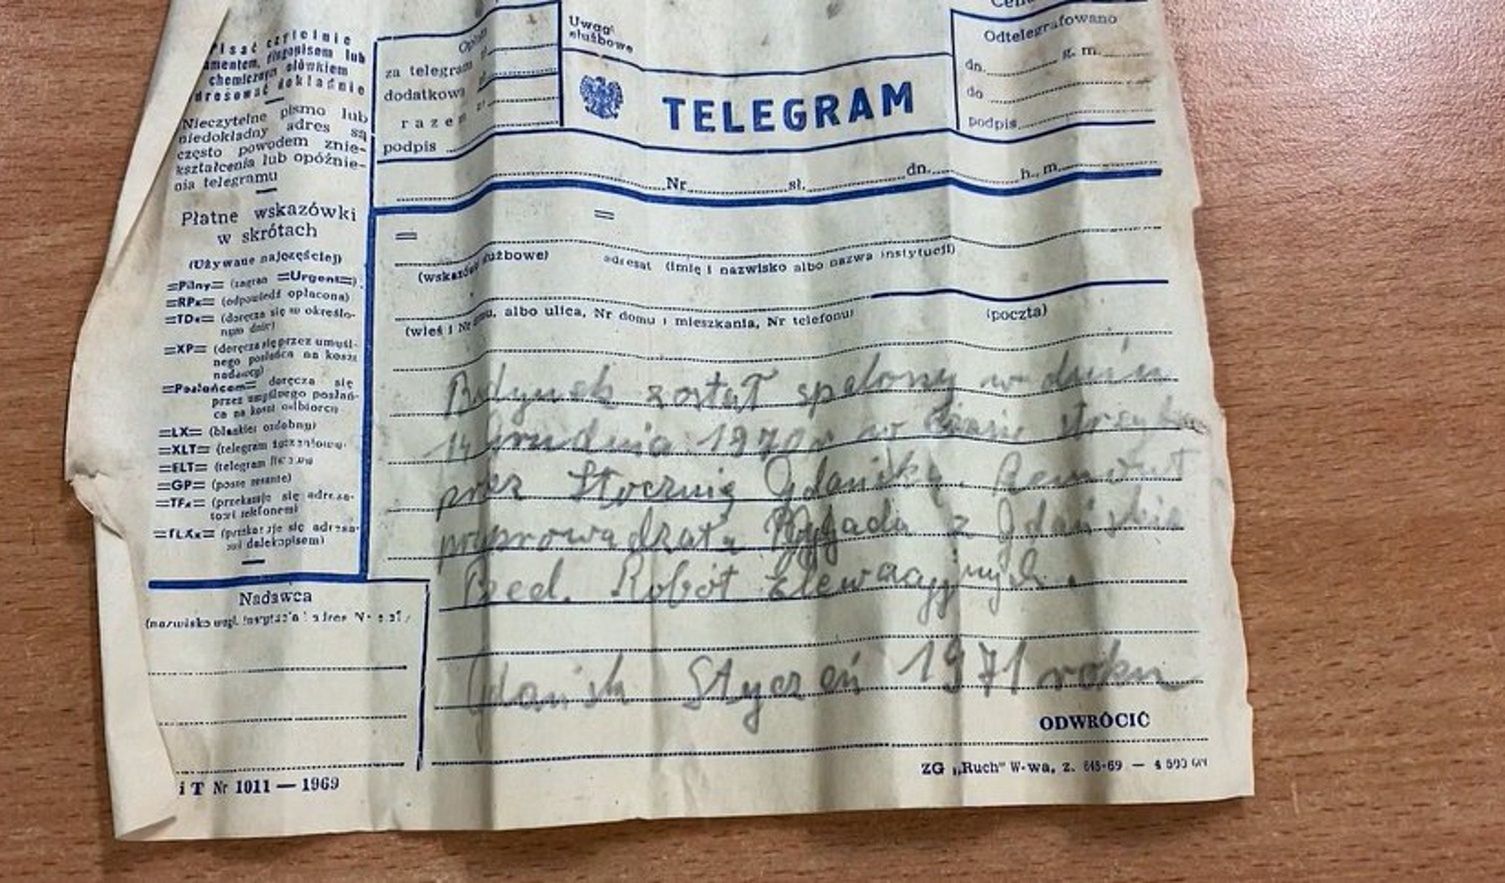 Pisać czytelnie
atramentem, długopisem lub
chemicznym ołówkiem
adresować dokładnie
Nieczytelne pismo lub
niedokładny adres są
często powodem znie-
kształcenia lub opóźnie-
nia telegramu
Płatne wskazówki
w skrótach
(Używane najczęściej)
=Pilny= (zagran =Urgent=)
=RPx= (odpowiedź opłacona)
=TDx= (doręcza się w określo-
nym dniu)
=XP= (doręcza się przez umyśl-
nego posłańca na koszt
nadawcy)
=Posłańcem= doręcza się
przez umyślnego posłań-
ca na koszt odbiorcy
=LX= (blankiet ozdobny)
=XLT= (telegram
=ELT= (telegram
=GP= (poste restante)
=TFx= (przekazuje się adresa-
towi telefonem)
=TLXx= (przekazuje się adresa-
towi dalekopisem)
Nadawca
i T Nr 1011 — 1969
Opłata
za telegram zł
dodatkowa zł
razem zł
podpis
Uwagi
służbowe
TELEGRAM
Odtelegrafowano
dn. g. m.
do
podpis
Nr sł. dn. h., m.
= =
(wskazówki służbowe) adresat (imię i nazwisko albo nazwa instytucji)
(wieś i Nr domu, albo ulica, Nr domu i mieszkania, Nr telefonu) (poczta)
Budynek został spalony w dniu
14 Grudnia 1970 r w czasie
przez Stocznię Gdańską. Remont
z Gdańska
Robót Elewacyjnych.
Gdańsk Styczeń 1971 roku
ODWRÓCIĆ
ZG „Ruch" W-wa, z. 645-69 —